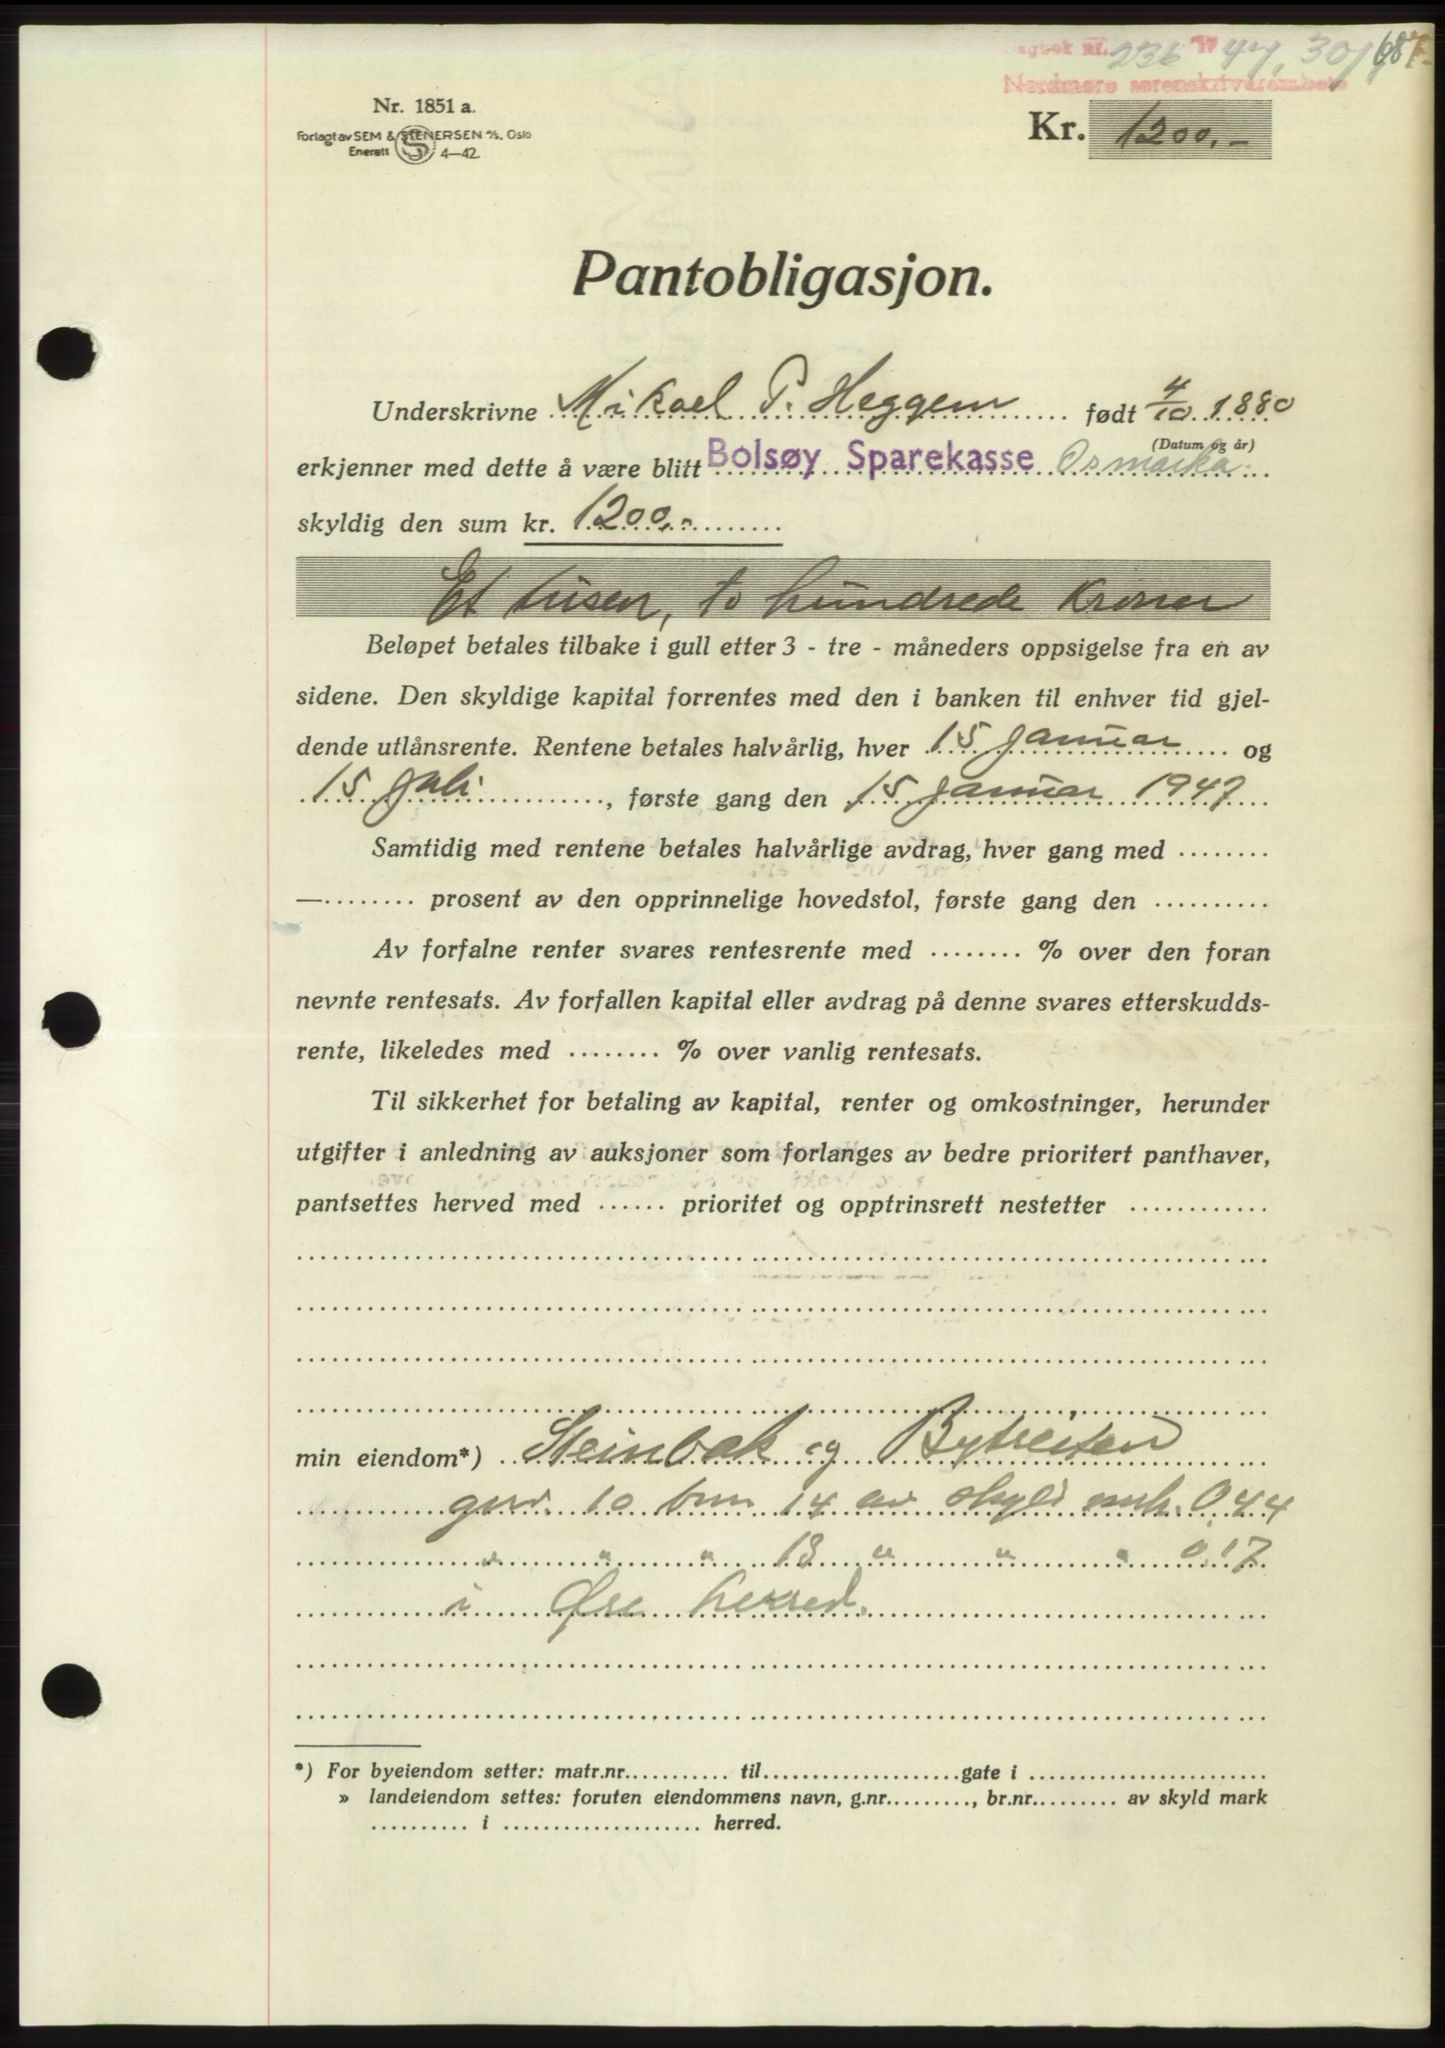 Dagbok nr. 236 19 47, 30/1 687
Nordmøre sorenskriverembete
Nr. 1851 a.
Forlagt av SEM & STENERSEN A/S, Oslo
Enerett S 4—42.
Kr. 1200.-
Pantobligasjon.
Underskrivne Mikael P. Heggem født 4/10 1880
(Datum og år)
erkjenner med dette å være blitt Bolsøy Sparekasse Osmarka
skyldig den sum kr. 1200.-
Et tusen, to hundrede kroner
Beløpet betales tilbake i gull etter 3 - tre - måneders oppsigelse fra en av
sidene. Den skyldige kapital forrentes med den i banken til enhver tid gjel-
dende utlånsrente. Rentene betales halvårlig, hver 15 januar og
15 juli, første gang den 15 januar 1947
Samtidig med rentene betales halvårlige avdrag, hver gang med ........
—........ prosent av den opprinnelige hovedstol, første gang den ..........
Av forfalne renter svares rentesrente med ........ % over den foran
nevnte rentesats. Av forfallen kapital eller avdrag på denne svares etterskudds-
rente, likeledes med ........ % over vanlig rentesats.
Til sikkerhet for betaling av kapital, renter og omkostninger, herunder
utgifter i anledning av auksjoner som forlanges av bedre prioritert panthaver,
pantsettes herved med ...... prioritet og opptrinsrett nestetter ............
min eiendom*) Steinbak og Bytreiten
gnr. 10 bnr 14 av skyld mrk. 0,44
" " " 18 " " " 0,17
i Øre herred.
*) For byeiendom setter: matr.nr........... til....................gate i ........................
» landeiendom settes: foruten eiendommens navn, g.nr........., br.nr......... av skyld mark
.......... i .................... herred.